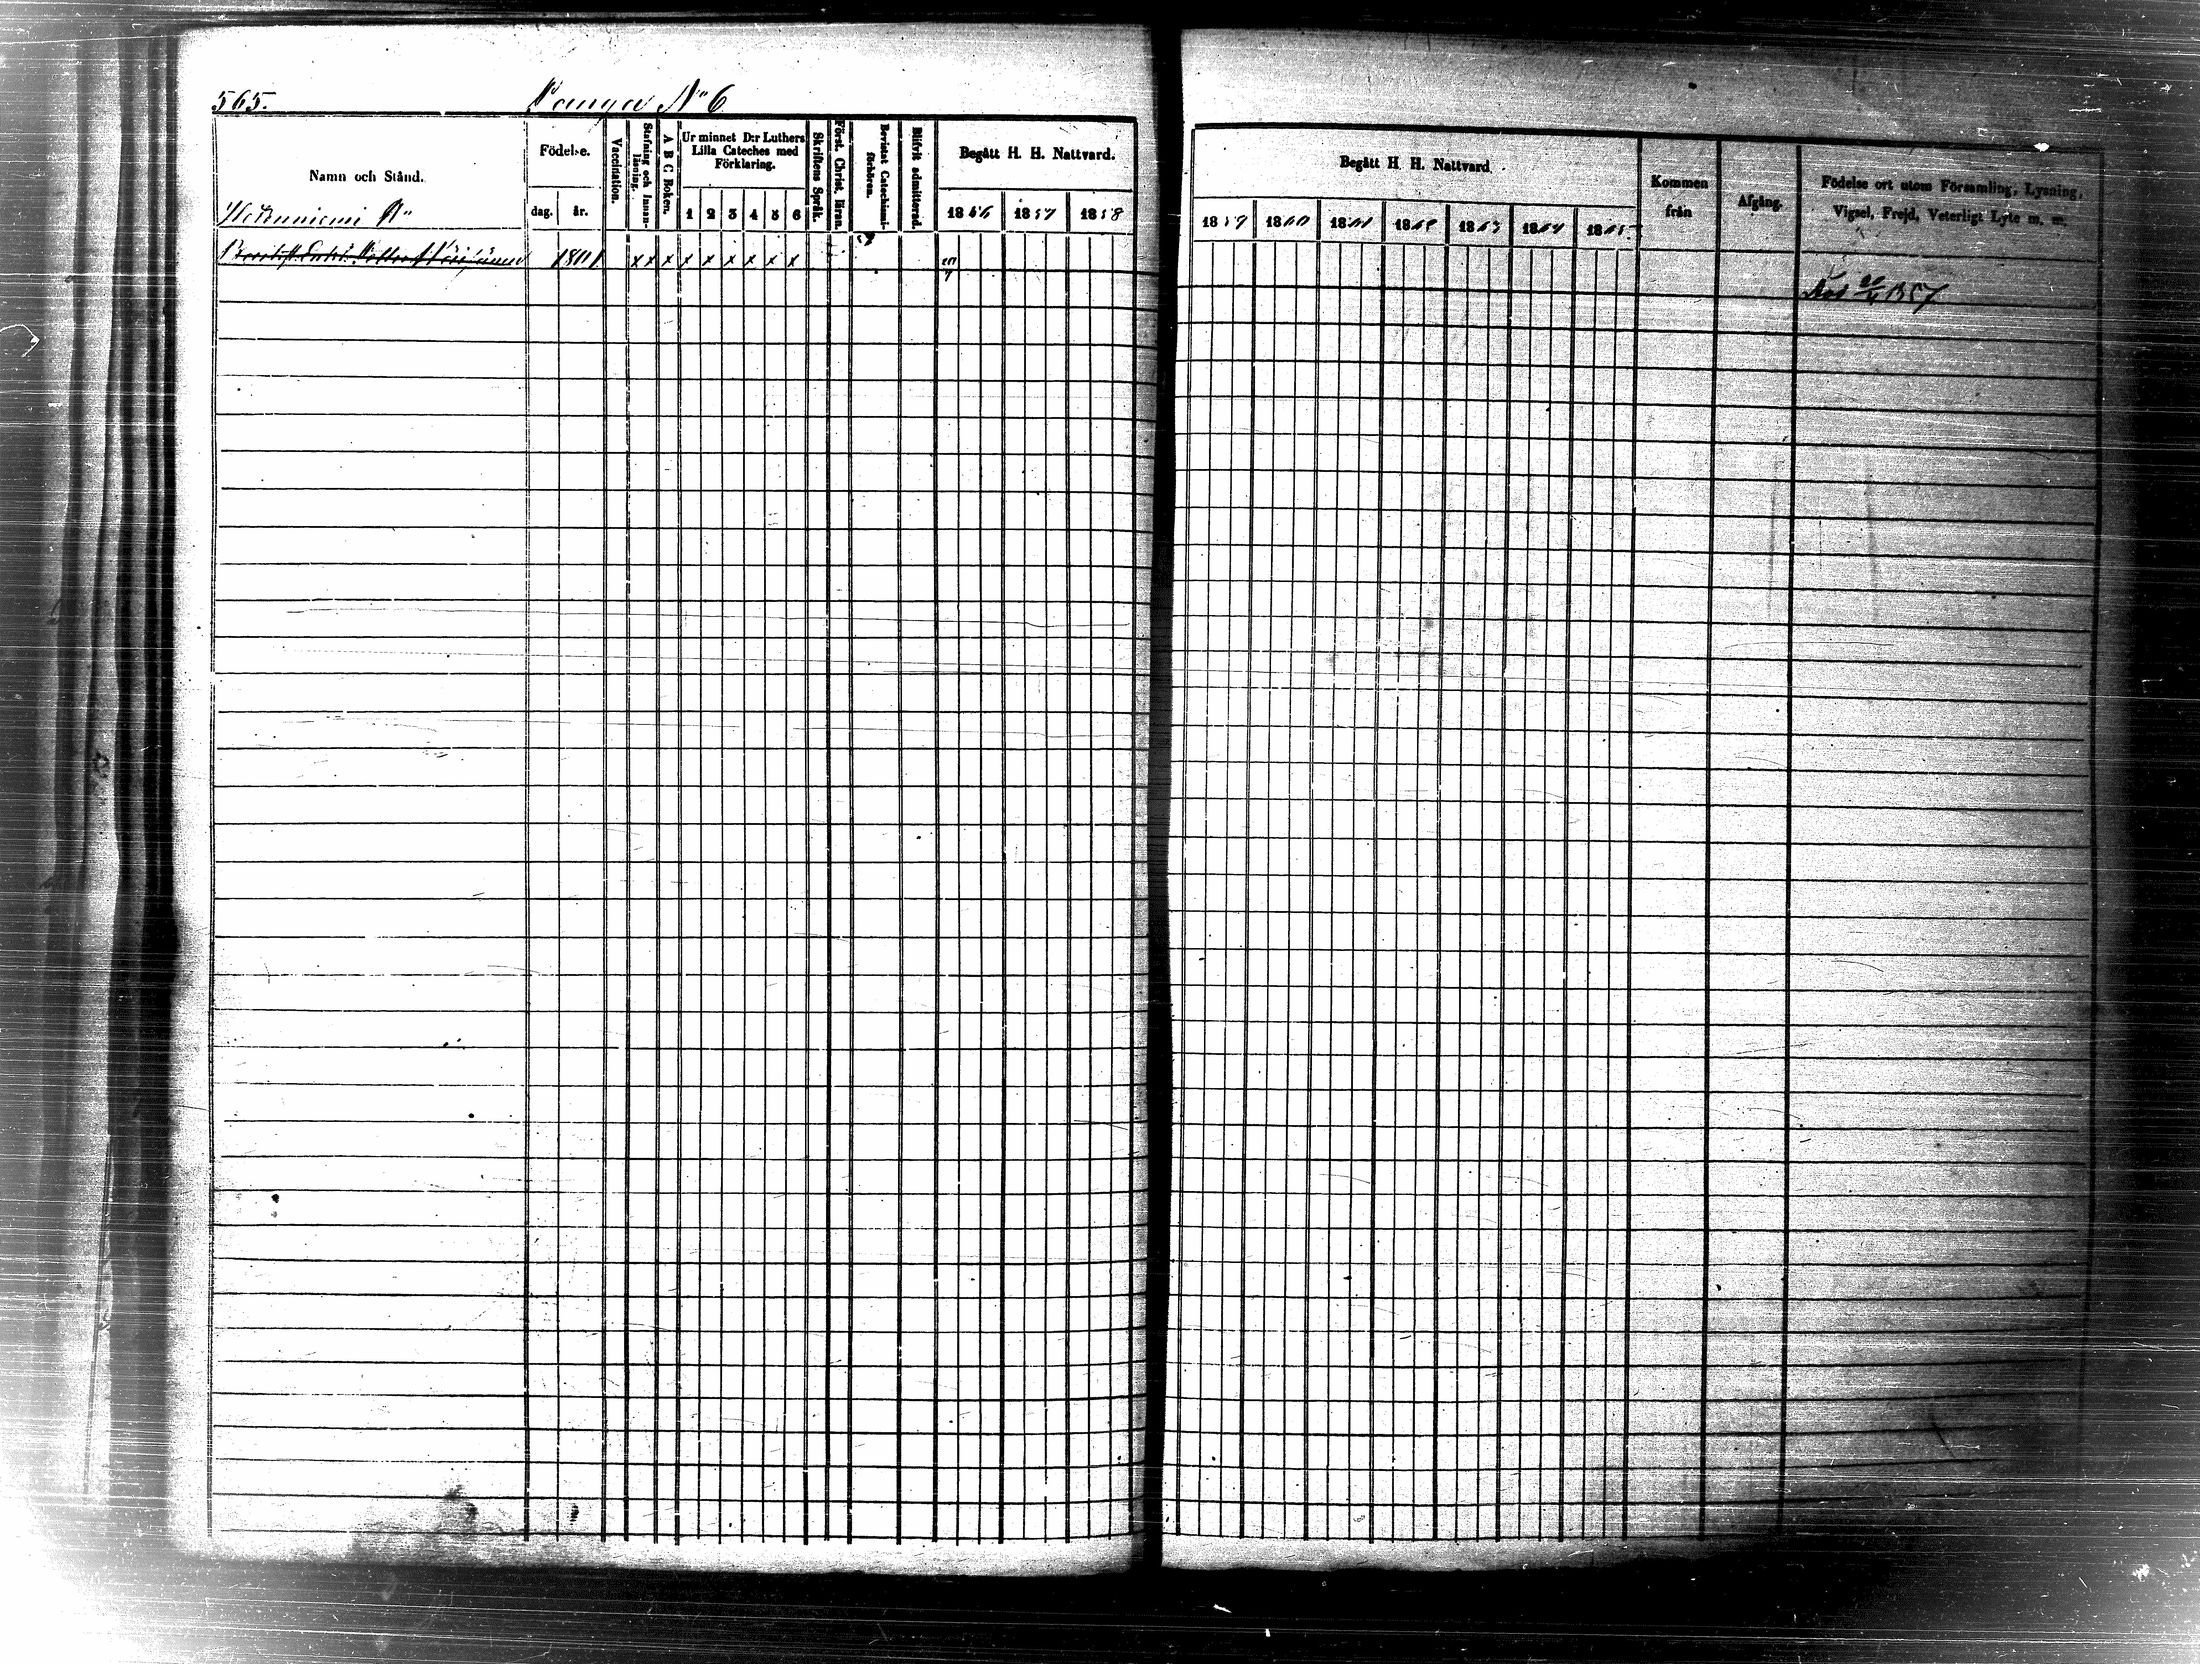 565. N:o 6
Namn och Stånd.
Födelse.
dag. år.
Vaccination.
Stafning och Innanläsning.
A B C Boken.
Ur minnet D:r Luthers Lilla Cateches med Förklaring.
1 2 3 4 5 6
Skriftens Språk.
Först. Christ. läran.
Bevistat Catechismiförhören.
Blifvit admitterad.
Begått H. H. Nattvard.
1856 1857 1858
Begått H. H. Nattvard.
1859 1860 1861 1862 1863 1864 1865
Kommen från
Afgång.
Födelse ort utom Församling, Lysning,
Vigsel, Frejd, Veterligt Lyte m. m.
1801 x x x x x x x x x
1857